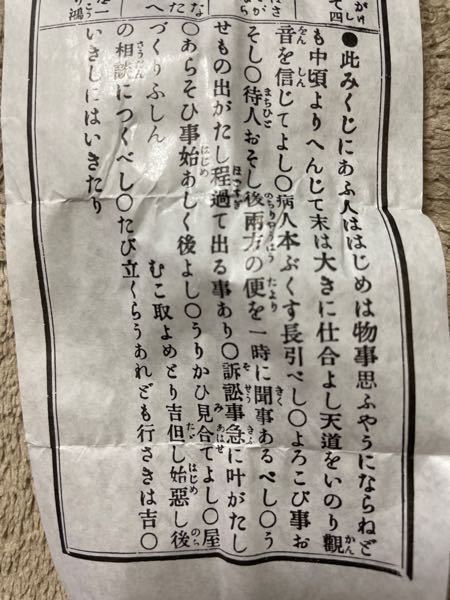 ●此みくじにあふ人ははじめは物事思ふやうにならねど
も中頃よりへんじて末は大きに仕合よし天道をいのり觀
音を信じてよし〇病人本ぶくす長引べし〇よろこび事お
そし〇待人おそし後兩方の便を一時に聞事あるべし〇う
せもの出がたし程過て出る事あり〇訴訟事急に叶がたし
〇あらそひ事始あしく後よし〇うりかひ見合てよし〇屋
づくりふしん　むこ取よめとり吉但し始惡し後
の相談につくべし〇たび立くらうあれども行さきは吉〇
いきしにはいきたり